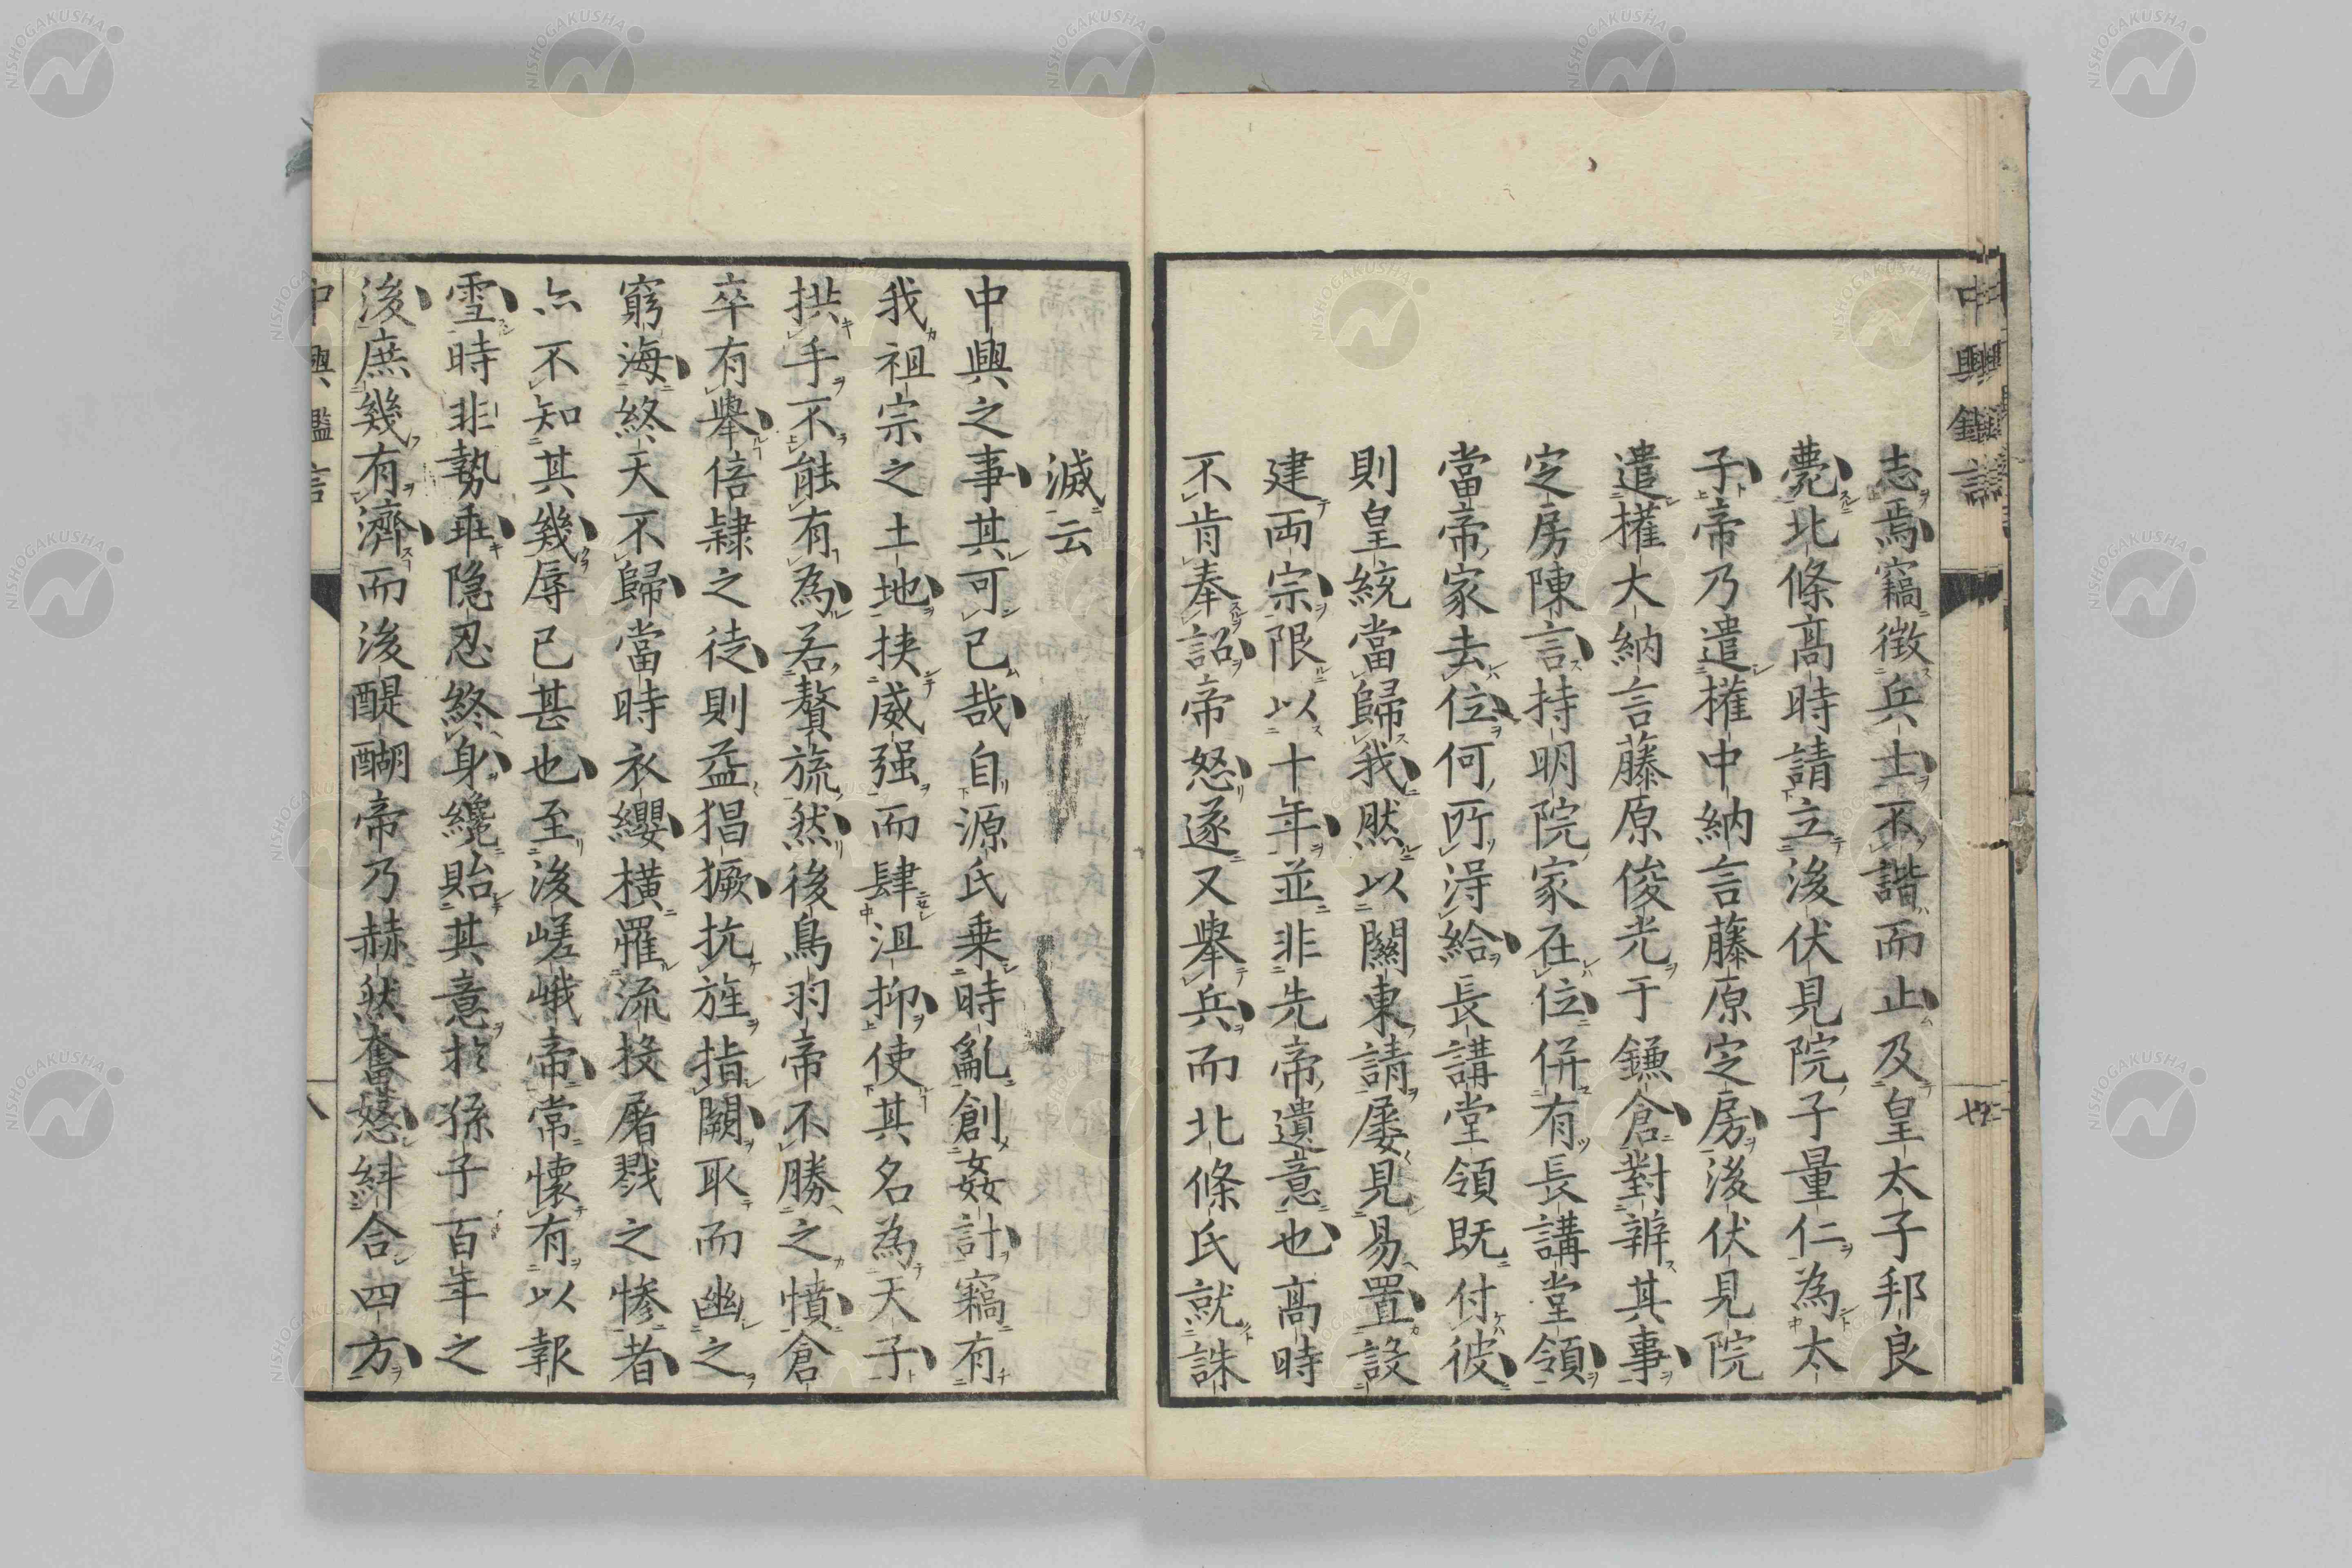 志焉竊徵兵士不諧而止及皇太子邦良
薨北條高時請立後伏見院子量仁為太
子帝乃遣權中納言藤原定房後伏見院
遣權大納言藤原俊光于鎌倉對辨其事
定房陳言持明院家在位併有長講堂領
當帝家去位何所得給長講堂領既付彼
則皇統當歸我然以關東請屢見易置設
建兩宗限以十年並非先帝遺意也高時
不肯奉詔帝怒遂又舉兵而北條氏就誅
滅云
中興之事其可已哉自源氏乗時亂創姦計竊有
我祖宗之土地挟威强而肆沮抑使其名為天子
拱手不能有為若贅旒然後鳥羽帝不勝之憤倉
卒有舉倍隷之徒則益猖獗抗旌指闕取而幽之
窮海終天不歸當時衣纓橫罹流投屠戮之惨者
亦不知其幾辱已甚也至後嵯峨帝常懷有以報
雪時非勢乖隐忍終身纔貽其意於孫子百年之
後庶幾有濟而後醍醐帝乃赫然奮怒糾合四方
中興鑑言
八